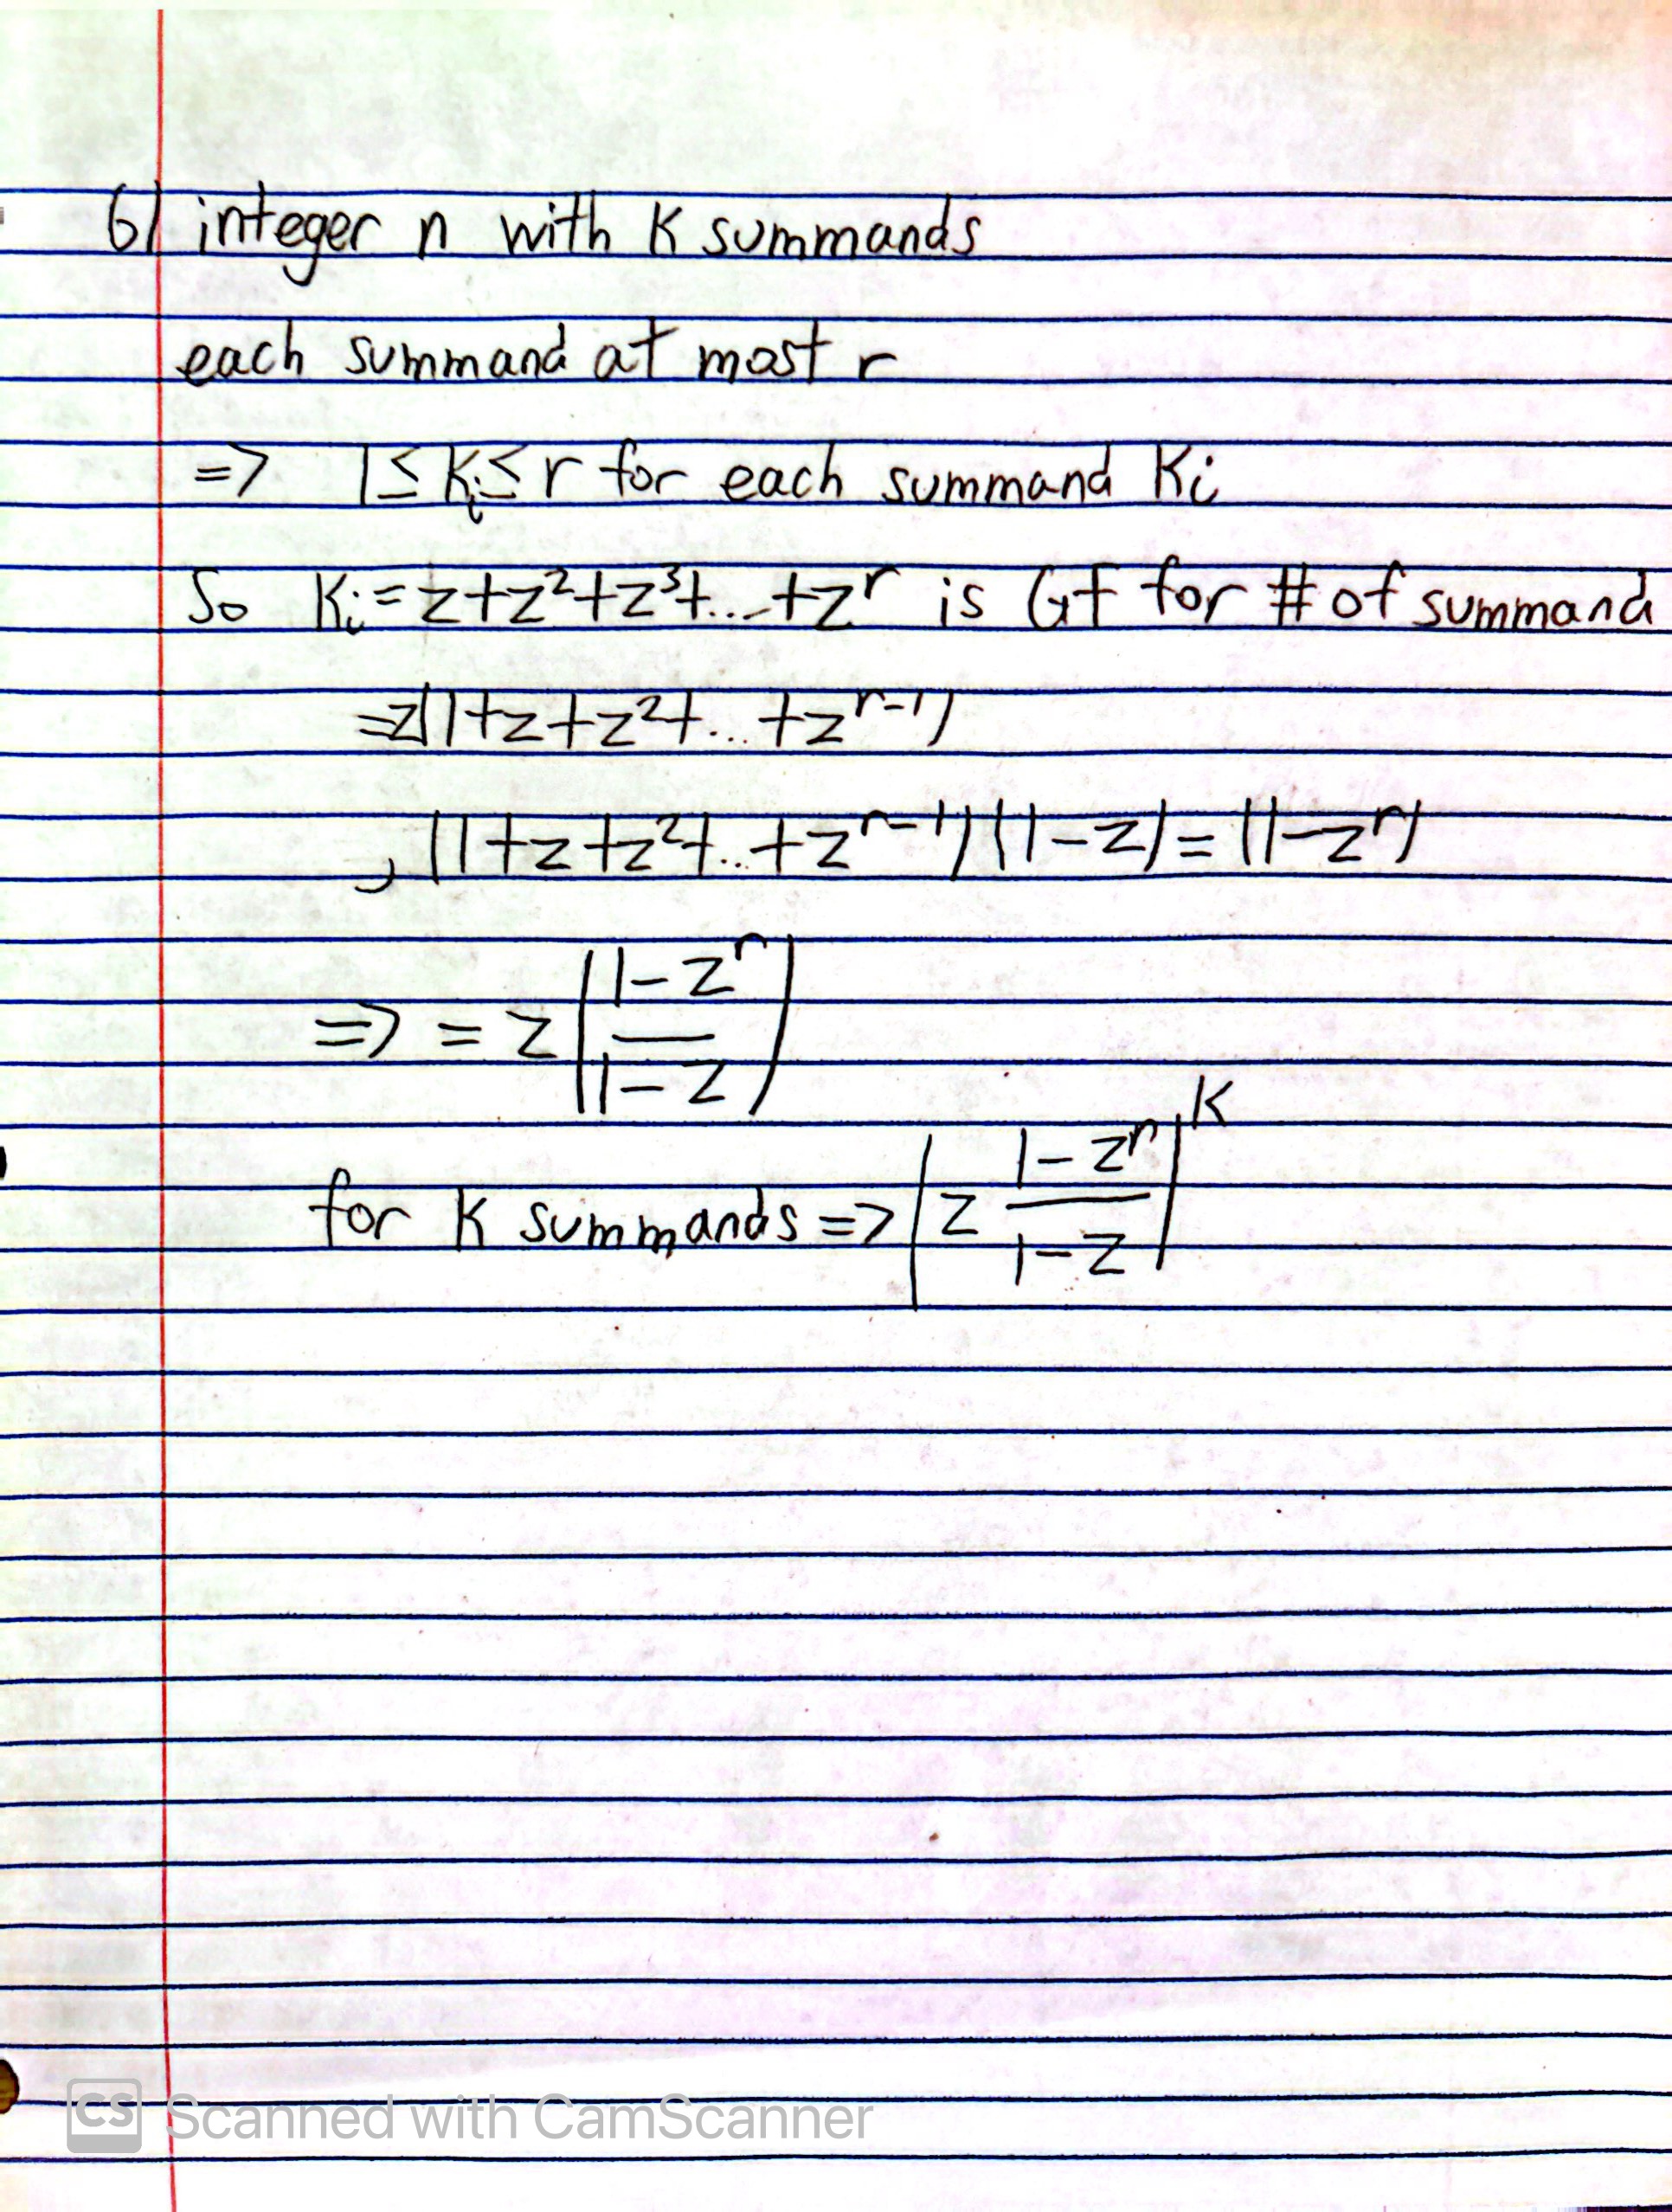 6) integer n with K summands
each summand at most r
=> 1 ≤ Ki ≤ r for each summand Ki
So Ki = z+z²+z³+...+z^r is GF for # of summand
=z(1+z+z²+...+z^(r-1))
, (1+z+z²+...+z^(r-1))(1-z) = (1-z^r)
=> = z((1-z^r)/(1-z))
for K summands => (z (1-z^r)/(1-z))^K
CS Scanned with CamScanner